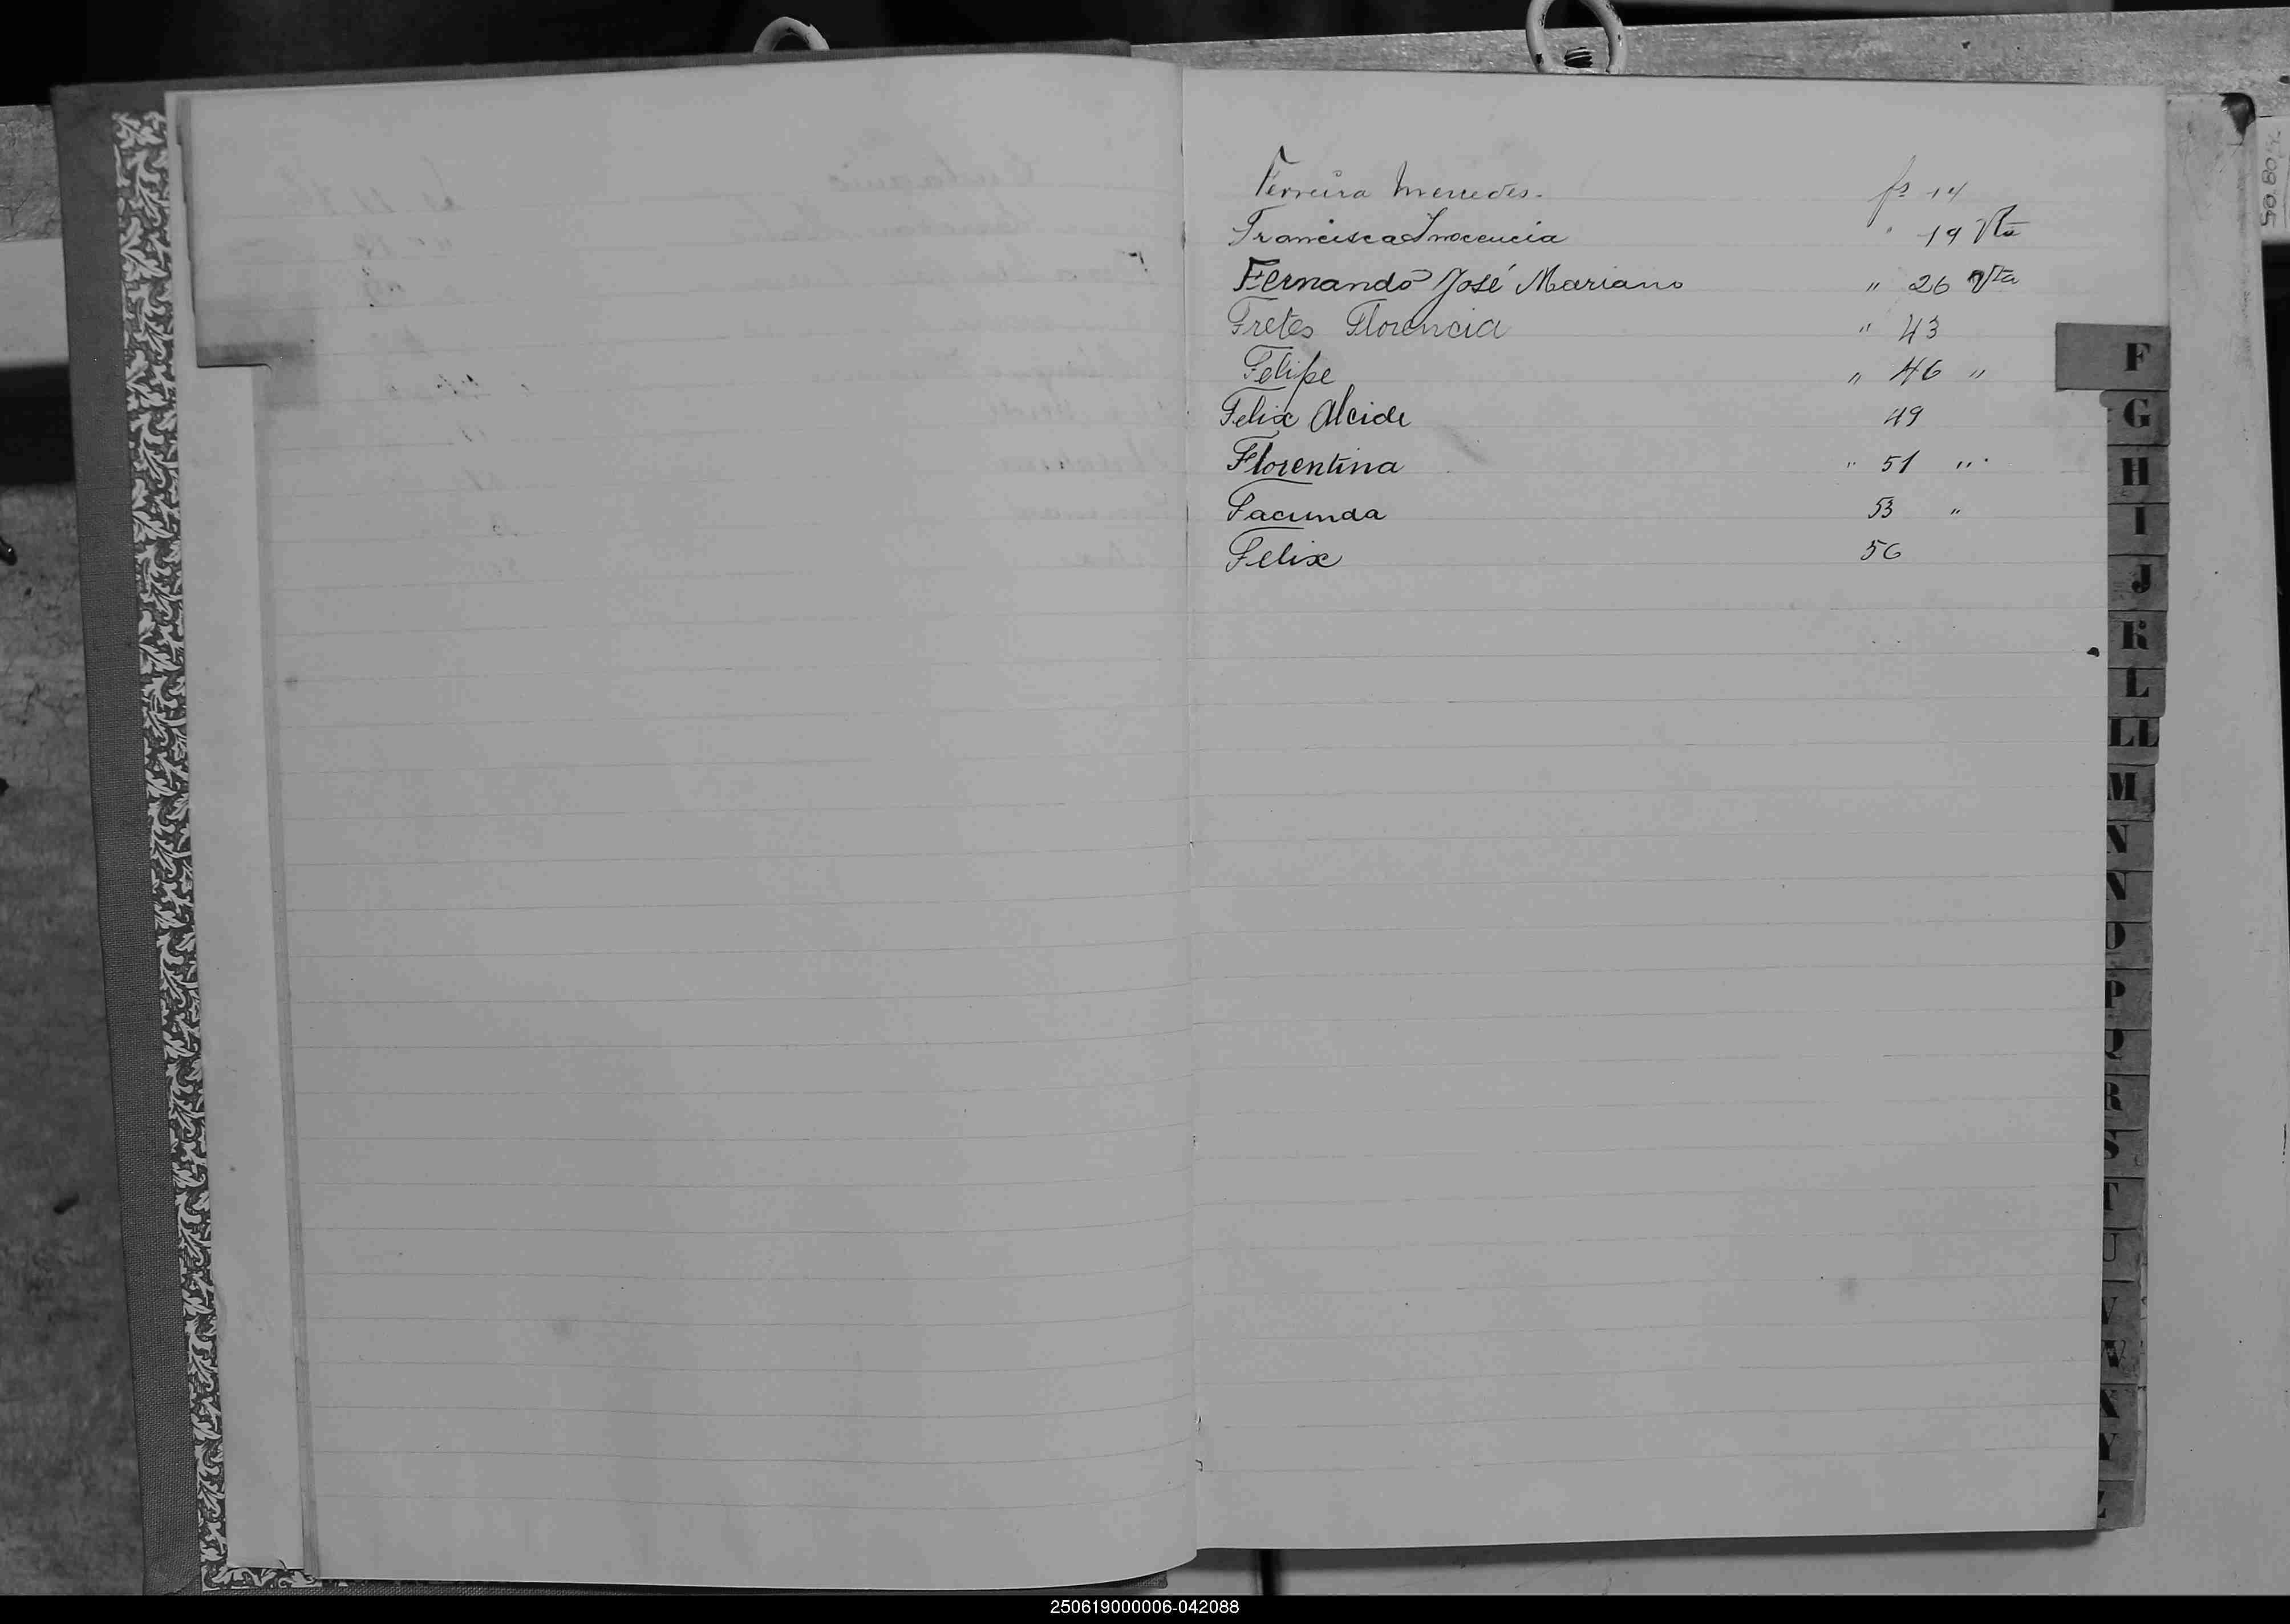 Ferreira Mercedes. fs 14
Francisca Inocencia " 19 Vta
Fernando José Mariano " 26 Vta
Fretes Florencia " 43
Felipe " 46 "
Felix Alcide 49
Florentina " 51 "
Facunda 53 "
Felix 56
F
G
H
I
J
K
L
LL
M
N
N
O
P
Q
R
S
T
U
V
W
X
Y
Z
250619000006-042088